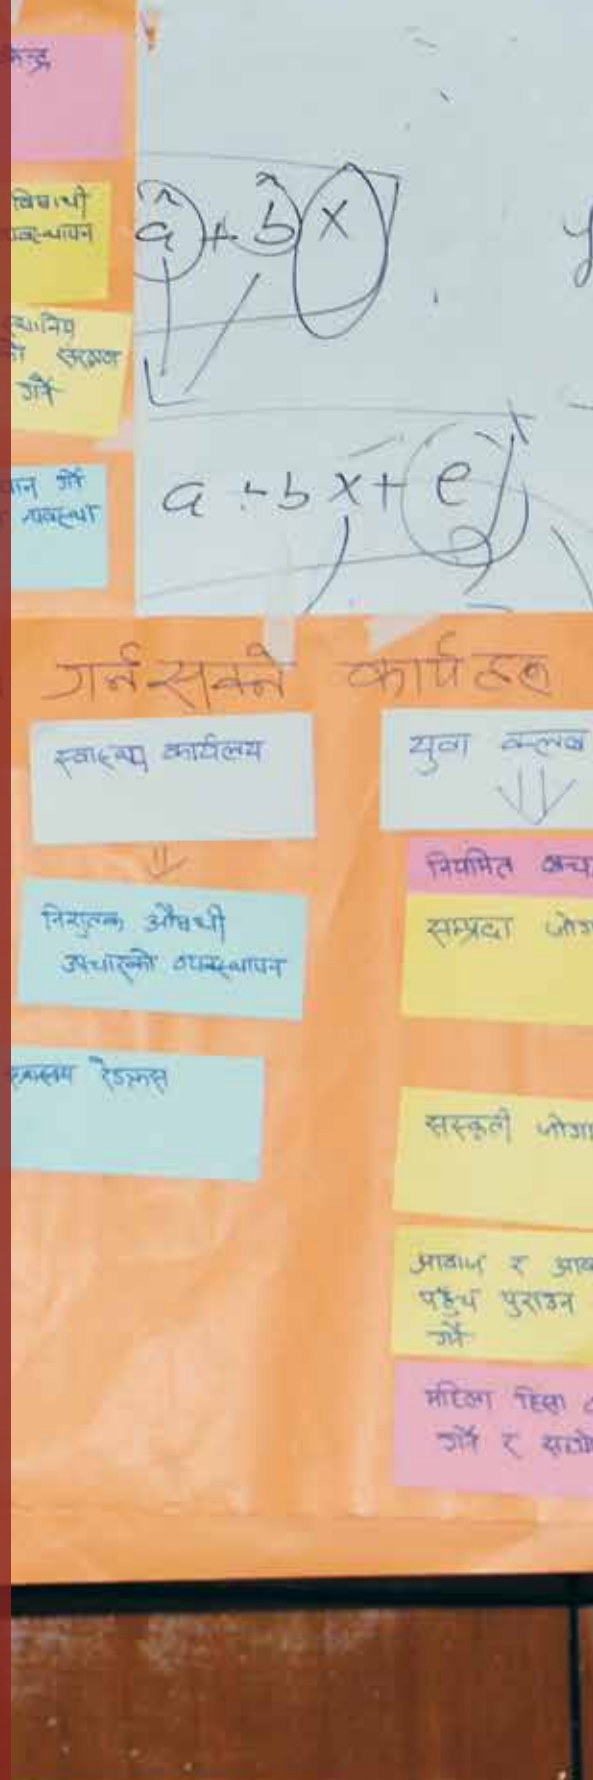 केन्द्र
विद्यार्थी
व्यवस्थापन
स्थानिय
को संरक्षण
गर्ने
गर्ने
व्यवस्था
â + b̂ x
y
a + bx + e
गर्न सक्ने कार्यहरू
स्वास्थ्य कार्यलय
निशुल्क औषधी
उपचारको व्यवस्थापन
रेडक्रस
युवा क्लब
नियमित
सम्प्रदा
सस्कृती
आवाज र
पहुँच पुराउन
गर्ने
महिला हिंसा
गर्ने र